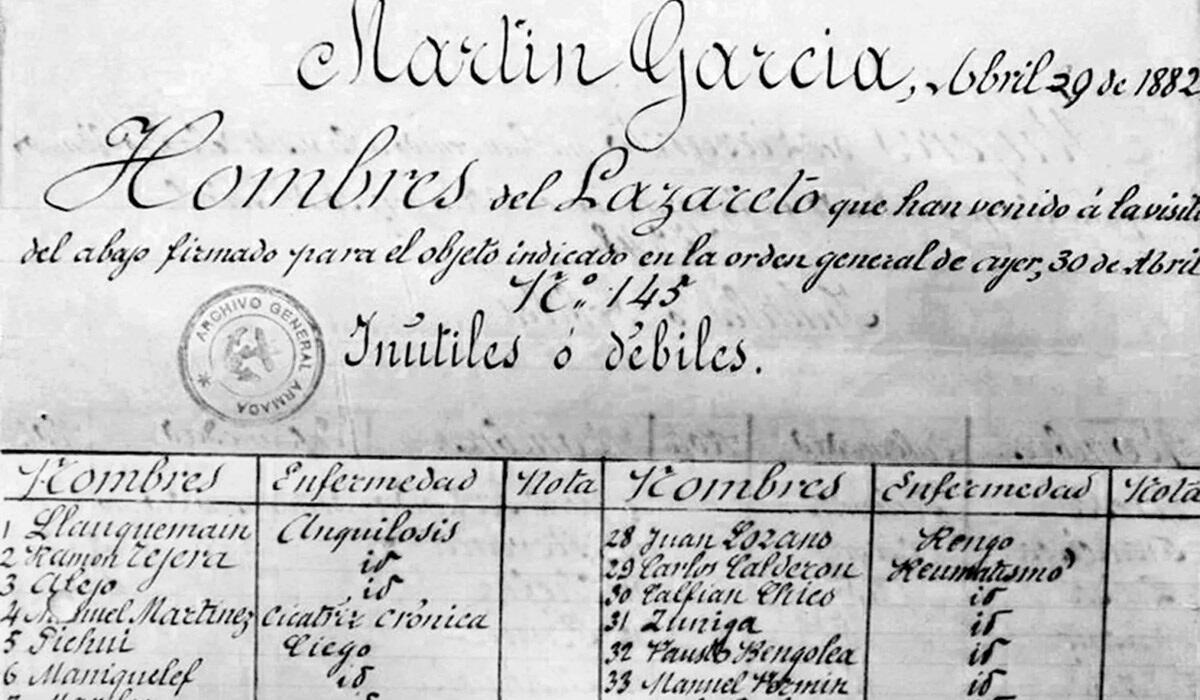 Martin Garcia, Abril 29 de 1882
Hombres del Lazareto que han venido á la visit
del abajo firmado para el objeto indicado en la orden general de ayer, 30 de Abril
Nº 145
ARCHIVO GENERAL ARMADA
Inútiles ó débiles.
Nombres Enfermedad Nota Nombres Enfermedad Nota
1 Llauquemain Anquilosis 28 Juan Lozano Rengo
2 Ramon Tejera id 29 Carlos Calderon Reumatismo
3 Alejo id 30 Calfian Chico id
4 Manuel Martinez Cicatriz Crónica 31 Zuñiga id
5 Pichui Ciego 32 Fausto Bengolea id
6 Maniquelef id 33 Manuel id